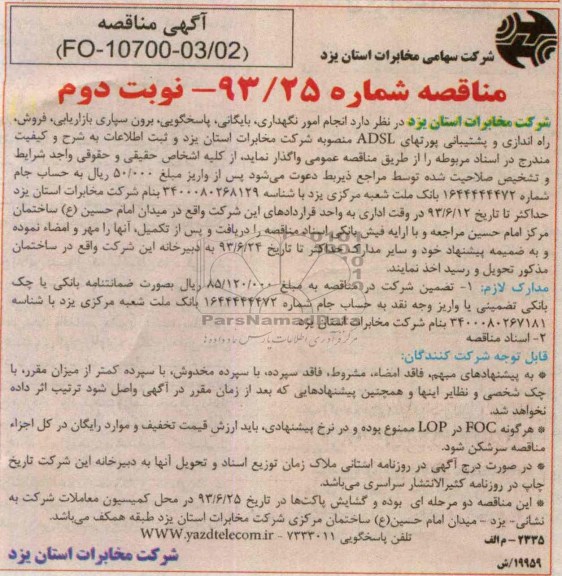 آگهی مناقصه
(FO-10700-03/02)
شرکت سهامی مخابرات استان یزد
مناقصه شماره ۹۳/۲۵- نوبت دوم
شرکت مخابرات استان یزد در نظر دارد انجام امور نگهداری، بایگانی، پاسخگویی، برون سپاری بازاریابی، فروش،
راه اندازی و پشتیبانی پورتهای ADSL منصوبه شرکت مخابرات استان یزد و ثبت اطلاعات به شرح و کیفیت
مندرج در اسناد مربوطه را از طریق مناقصه عمومی واگذار نماید، از کلیه اشخاص حقیقی و حقوقی واجد شرایط
و تشخیص صلاحیت شده توسط مراجع ذیربط دعوت می‌شود پس از واریز مبلغ ۵۰/۰۰۰ ریال به حساب جام
شماره ۱۶۴۴۴۴۴۴۷۲ بانک ملت شعبه مرکزی یزد با شناسه ۳۴۰۰۰۸۰۲۶۸۱۲۹ بنام شرکت مخابرات استان یزد
حداکثر تا تاریخ ۹۳/۶/۱۲ در وقت اداری به واحد قراردادهای این شرکت واقع در میدان امام حسین (ع) ساختمان
مرکز امام حسین مراجعه و با ارایه فیش بانکی اسناد مناقصه را دریافت و پس از تکمیل، آنها را مهر و امضاء نموده
و به ضمیمه پیشنهاد خود و سایر مدارک حداکثر تا تاریخ ۹۳/۶/۲۴ به دبیرخانه این شرکت واقع در ساختمان
مذکور تحویل و رسید اخذ نمایند.
مدارک لازم: ۱- تضمین شرکت در مناقصه به مبلغ ۸۵/۱۲۰/۰۰۰ ریال بصورت ضمانتنامه بانکی یا چک
بانکی تضمینی یا واریز وجه نقد به حساب جام شماره ۱۶۴۴۴۴۴۴۷۲ بانک ملت شعبه مرکزی یزد با شناسه
۳۴۰۰۰۸۰۲۶۷۱۸۱ بنام شرکت مخابرات استان یزد
ParsNamadData
۲- اسناد مناقصه
مرکز فرآوری اطلاعات پارس نماد داده‌ها
قابل توجه شرکت کنندگان:
* به پیشنهادهای مبهم، فاقد امضاء، مشروط، فاقد سپرده، با سپرده مخدوش، با سپرده کمتر از میزان مقرر، با
چک شخصی و نظایر اینها و همچنین پیشنهادهایی که بعد از زمان مقرر در آگهی واصل شود ترتیب اثر داده
نخواهد شد.
* هرگونه FOC در LOP ممنوع بوده و در نرخ پیشنهادی، باید ارزش قیمت تخفیف و موارد رایگان در کل اجزاء
مناقصه سرشکن شود.
* در صورت درج آگهی در روزنامه استانی ملاک زمان توزیع اسناد و تحویل آنها به دبیرخانه این شرکت تاریخ
چاپ در روزنامه کثیرالانتشار سراسری می‌باشد.
* این مناقصه دو مرحله ای بوده و گشایش پاکت‌ها در تاریخ ۹۳/۶/۲۵ در محل کمیسیون معاملات شرکت به
نشانی- یزد - میدان امام حسین(ع) ساختمان مرکزی شرکت مخابرات استان یزد طبقه همکف می‌باشد.
۲۳۳۵- م الف تلفن پاسخگویی ۷۳۳۳۰۱۱ - WWW.yazdtelecom.ir
شرکت مخابرات استان یزد
۱۹۹۵۹/ش